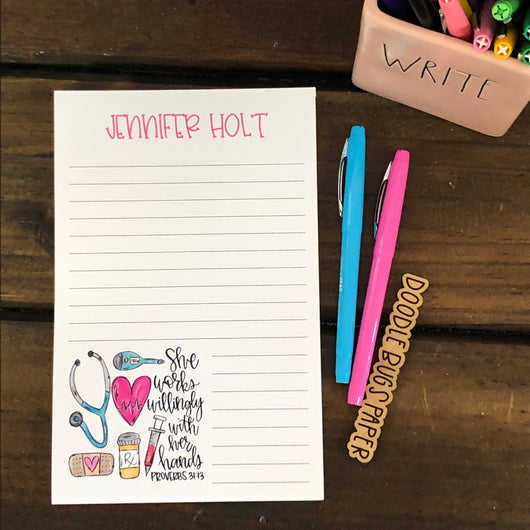 WRITE
JENNIFER HOLT
She
works
willingly
with
her
hands
PROVERBS 31:13
Rx
DOODLE BUGS PAPER